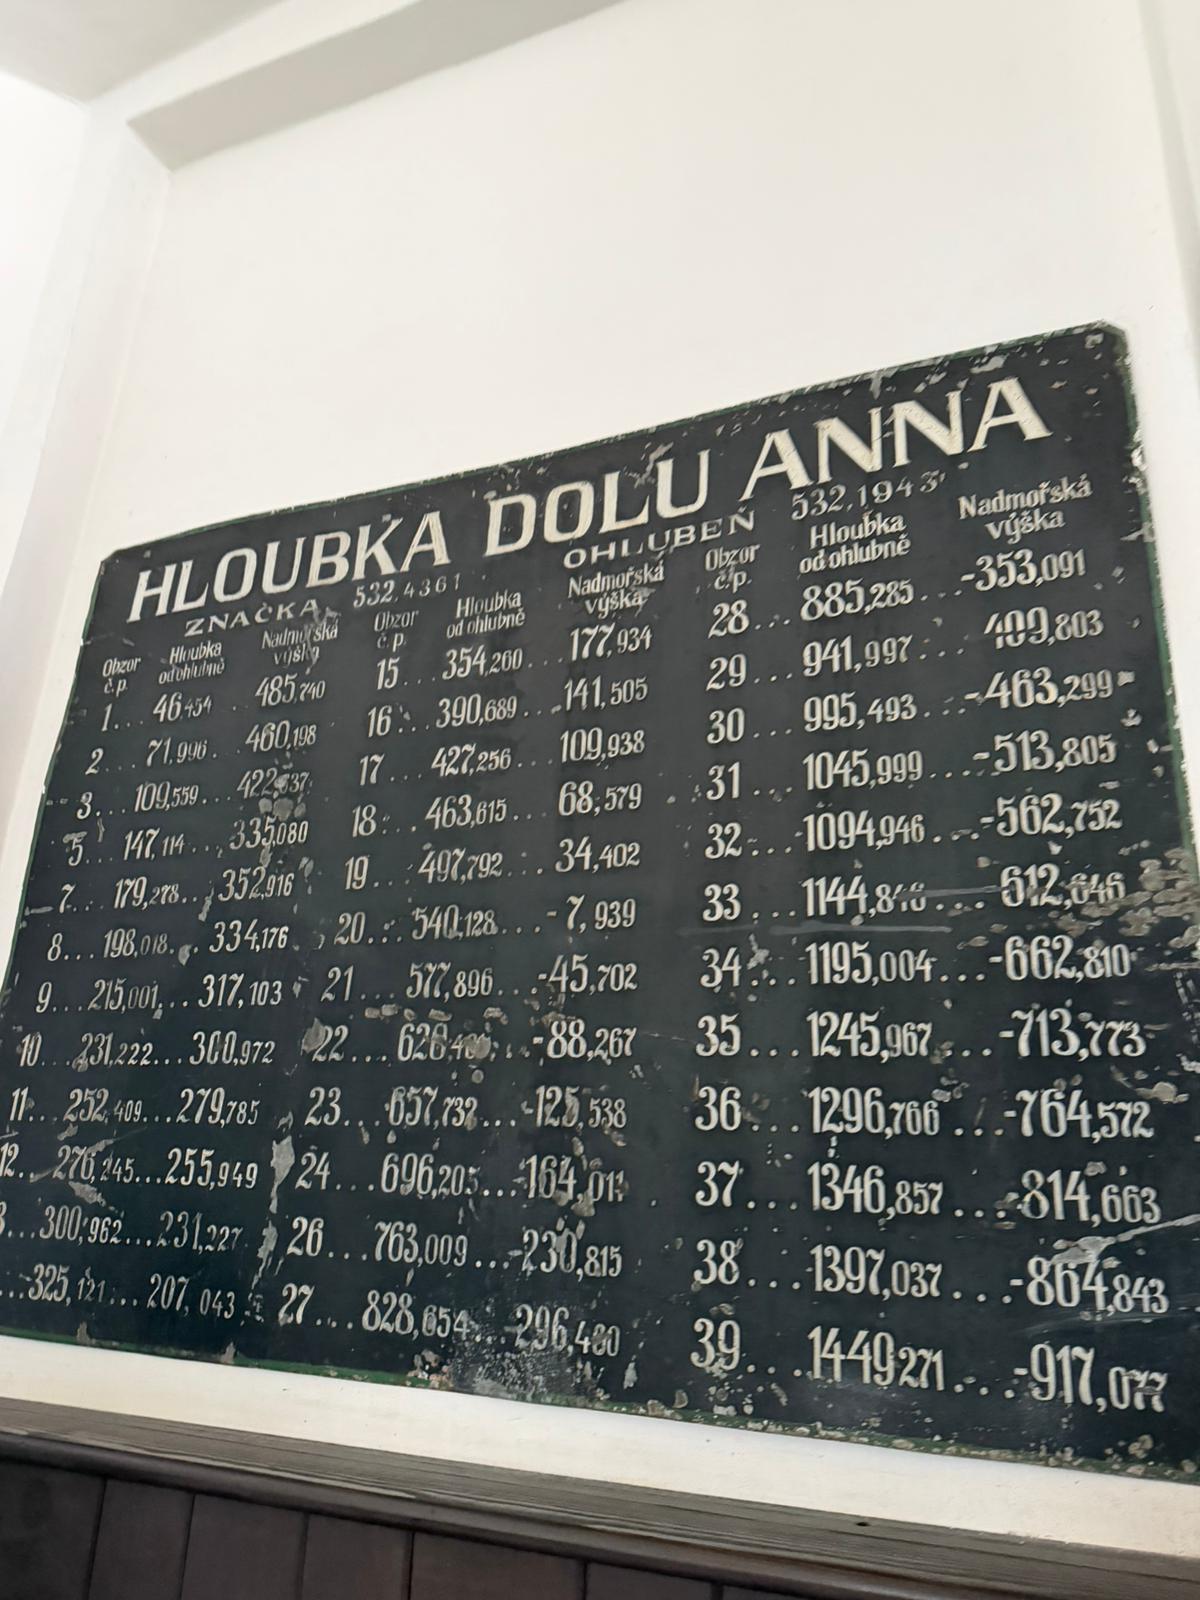 HLOUBKA DOLU ANNA
ZNAČKA 532.4361 OHLUBEŇ 532,1943
Obzor č.p. Hloubka od ohlubně Nadmořská výška
1... 46,454 .. 485,740
2... 71,996... 460,198
3... 109,559...
5... 147,114... 335,080
7... 179,278... 352,916
8... 198,018... 334,176
9... 215,001... 317,103
10... 231,222... 300,972
11... 252,409... 279,785
12... 276,245... 255,949
...300,962... 231,227
...325,121... 207,043
Obzor č.p. Hloubka od ohlubně Nadmořská výška
15... 354,260... 177,934
16... 390,689... 141,505
17... 427,256... 109,938
18... 463,615... 68,579
19... 497,792... 34,402
20... 540,128... -7,939
21... 577,896... -45,702
22... -88,267
23... 657,732... -125,538
24... 696,205...
26... 763,009... -230,815
27... 828,654... -296,460
Obzor č.p. Hloubka od ohlubně Nadmořská výška
28... 885,285... -353,091
29... 941,997... 409,803
30... 995,493... -463,299
31... 1045,999... -513,805
32... 1094,946... -562,752
33... 1144,846... 612,646
34... 1195,004... -662,810
35... 1245,967... -713,773
36... 1296,766... -764,572
37... 1346,857... -814,663
38... 1397,037... -864,843
39... 1449271... -917,077